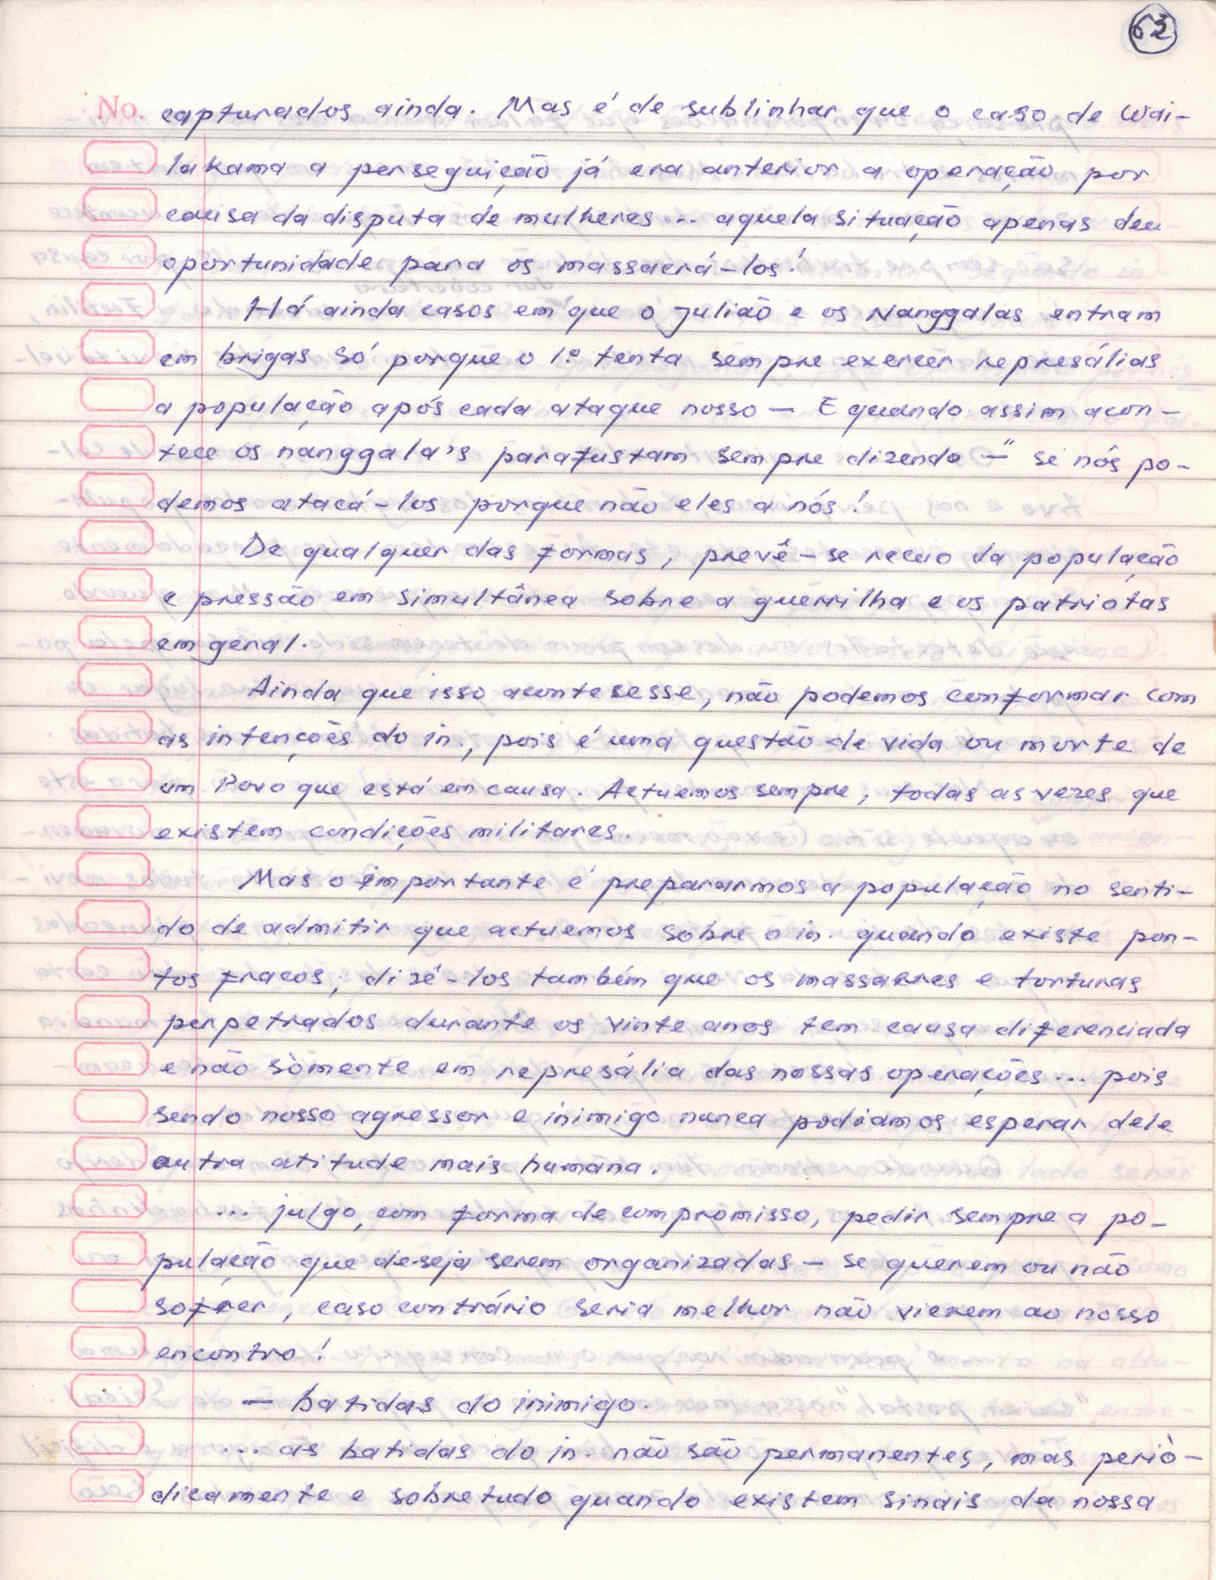 63
No. capturados ainda. Mas é de sublinhar que o caso de Wai-
lakama a perseguição já era anterior a operação por
causa da disputa de mulheres ... aquela situação apenas deu
oportunidade para os massacrá-los!
Há ainda casos em que o Julião e os Nanggalas entram
em brigas só porque o 1.º tenta sempre exercer represálias
a população após cada ataque nosso — E quando assim acon-
tece os nanggala's parafustam sempre dizendo — " se nós po-
demos atacá-los porque não eles a nós!
De qualquer das formas, prevê-se recuo da população
e pressão em simultânea sobre a guerrilha e os patriotas
em geral.
Ainda que isso acontesesse, não podemos conformar com
as intenções do in., pois é uma questão de vida ou morte de
um Povo que está em causa. Actuemos sempre, todas as vezes que
existem condições militares.
Mas o importante é prepararmos a população no senti-
do de admitir que actuemos sobre o in. quando existe pon-
tos fracos, dizê-los também que os massacres e torturas
perpetrados durante os vinte anos tem causa diferenciada
e não sòmente em represália das nossas operações ... pois
sendo nosso agressor e inimigo nunca podíamos esperar dele
outra atitude mais humana.
... julgo, com forma de compromisso, pedir sempre a po-
pulação que deseja serem organizadas — se querem ou não
sofrer, caso contrário seria melhor não vierem ao nosso
encontro!
— batidas do inimigo.
... as batidas do in. não são permanentes, mas periò-
dicamente e sobretudo quando existem sinais da nossa